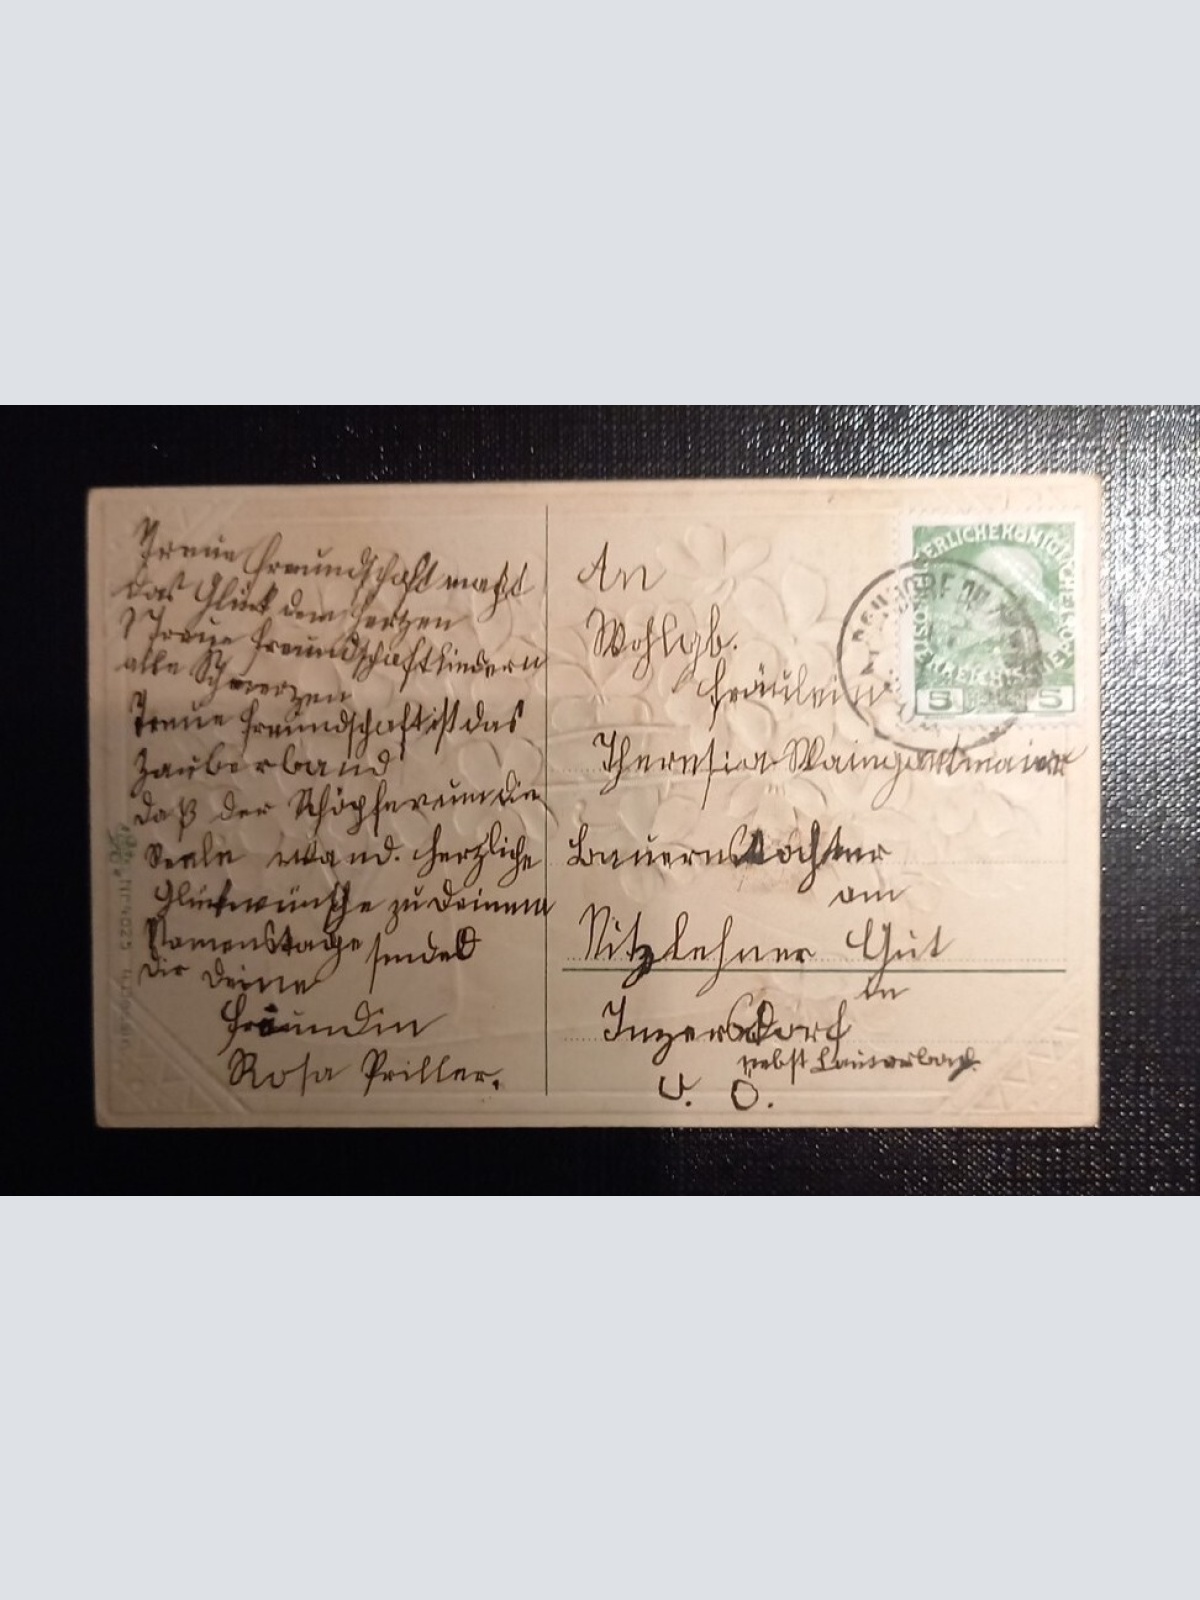 Treue Freundschaft macht
das Glück dem Herzen
Treue Freundschaft lindern
alle Schmerzen
Treue Freundschaft ist das
Zauberband
daß der Schöpfer um die
Seele wand. Herzliche
Glückwünsche zu Deinem
Namenstage sendet
Dir Deine
Freundin
Rosa Priller.
An
Wohlgb.
Fräulein
Theresia Waimgartmaier
Bauernstochter
am
Nitzlehner Gut
in
Inzersdorf
nebst Lauterbach.
O. Ö.
KAISERLICHE KÖNIGLICHE
5 5